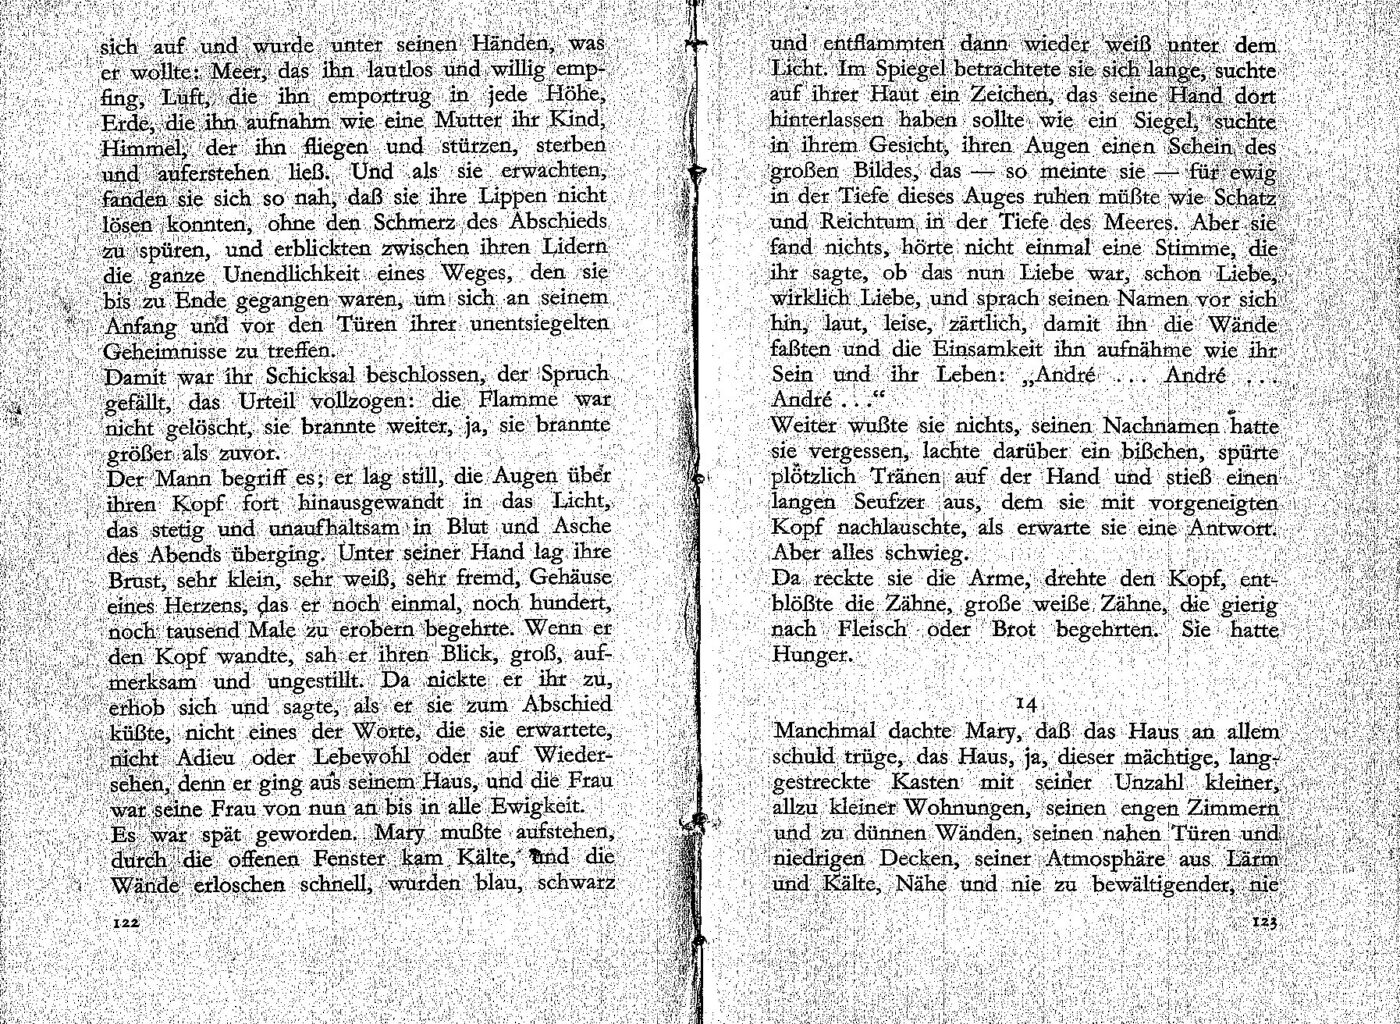 sich auf und wurde unter seinen Händen, was
er wollte: Meer, das ihn lautlos und willig emp-
fing, Luft, die ihn emportrug in jede Höhe,
Erde, die ihn aufnahm wie eine Mutter ihr Kind,
Himmel, der ihn fliegen und stürzen, sterben
und auferstehen ließ. Und als sie erwachten,
fanden sie sich so nah, daß sie ihre Lippen nicht
lösen konnten, ohne den Schmerz des Abschieds
zu spüren, und erblickten zwischen ihren Lidern
die ganze Unendlichkeit eines Weges, den sie
bis zu Ende gegangen waren, um sich an seinem
Anfang und vor den Türen ihrer unentsiegelten
Geheimnisse zu treffen.
Damit war ihr Schicksal beschlossen, der Spruch
gefällt, das Urteil vollzogen: die Flamme war
nicht gelöscht, sie brannte weiter, ja, sie brannte
größer als zuvor.
Der Mann begriff es; er lag still, die Augen über
ihren Kopf fort hinausgewandt in das Licht,
das stetig und unaufhaltsam in Blut und Asche
des Abends überging. Unter seiner Hand lag ihre
Brust, sehr klein, sehr weiß, sehr fremd, Gehäuse
eines Herzens, das er noch einmal, noch hundert,
noch tausend Male zu erobern begehrte. Wenn er
den Kopf wandte, sah er ihren Blick, groß, auf-
merksam und ungestillt. Da nickte er ihr zu,
erhob sich und sagte, als er sie zum Abschied
küßte, nicht eines der Worte, die sie erwartete,
nicht Adieu oder Lebewohl oder auf Wieder-
sehen, denn er ging aus seinem Haus, und die Frau
war seine Frau von nun an bis in alle Ewigkeit.
Es war spät geworden. Mary mußte aufstehen,
durch die offenen Fenster kam Kälte, und die
Wände erloschen schnell, wurden blau, schwarz
122
und entflammten dann wieder weiß unter dem
Licht. Im Spiegel betrachtete sie sich lange, suchte
auf ihrer Haut ein Zeichen, das seine Hand dort
hinterlassen haben sollte wie ein Siegel, suchte
in ihrem Gesicht, ihren Augen einen Schein des
großen Bildes, das — so meinte sie — für ewig
in der Tiefe dieses Auges ruhen müßte wie Schatz
und Reichtum in der Tiefe des Meeres. Aber sie
fand nichts, hörte nicht einmal eine Stimme, die
ihr sagte, ob das nun Liebe war, schon Liebe,
wirklich Liebe, und sprach seinen Namen vor sich
hin, laut, leise, zärtlich, damit ihn die Wände
faßten und die Einsamkeit ihn aufnähme wie ihr
Sein und ihr Leben: „André ... André ...
André ...“
Weiter wußte sie nichts, seinen Nachnamen hatte
sie vergessen, lachte darüber ein bißchen, spürte
plötzlich Tränen auf der Hand und stieß einen
langen Seufzer aus, dem sie mit vorgeneigten
Kopf nachlauschte, als erwarte sie eine Antwort.
Aber alles schwieg.
Da reckte sie die Arme, drehte den Kopf, ent-
blößte die Zähne, große weiße Zähne, die gierig
nach Fleisch oder Brot begehrten. Sie hatte
Hunger.
14
Manchmal dachte Mary, daß das Haus an allem
schuld trüge, das Haus, ja, dieser mächtige, lang-
gestreckte Kasten mit seiner Unzahl kleiner,
allzu kleiner Wohnungen, seinen engen Zimmern
und zu dünnen Wänden, seinen nahen Türen und
niedrigen Decken, seiner Atmosphäre aus Lärm
und Kälte, Nähe und nie zu bewältigender, nie
123